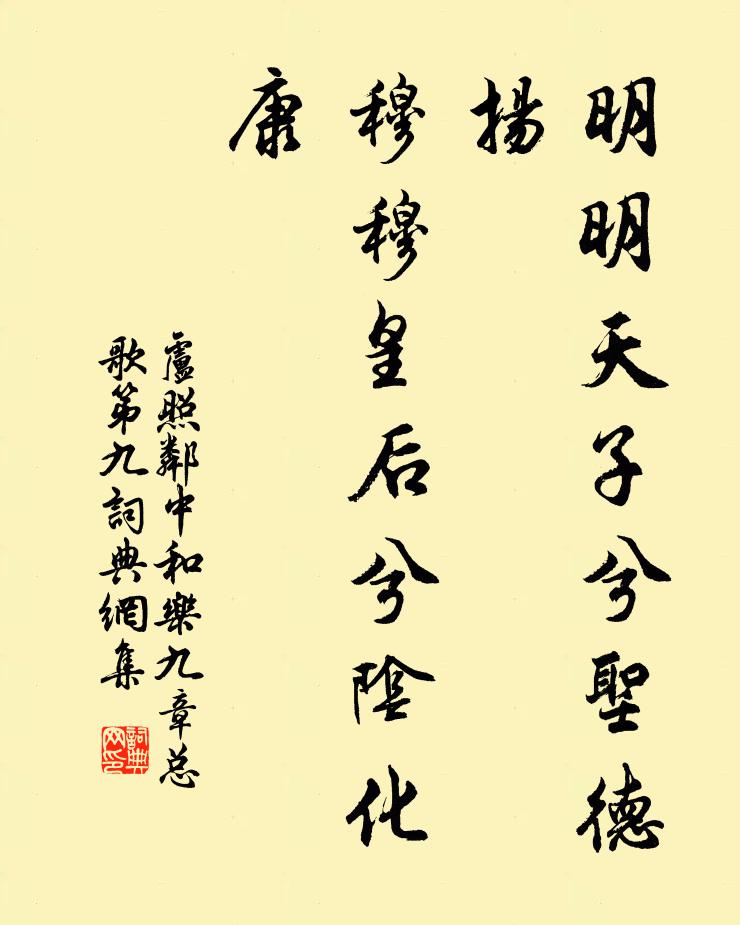 明明天子兮聖德
揚
穆穆皇后兮陰化
康
盧照鄰中和樂九章总
歌第九詞典網集
詞典
网印